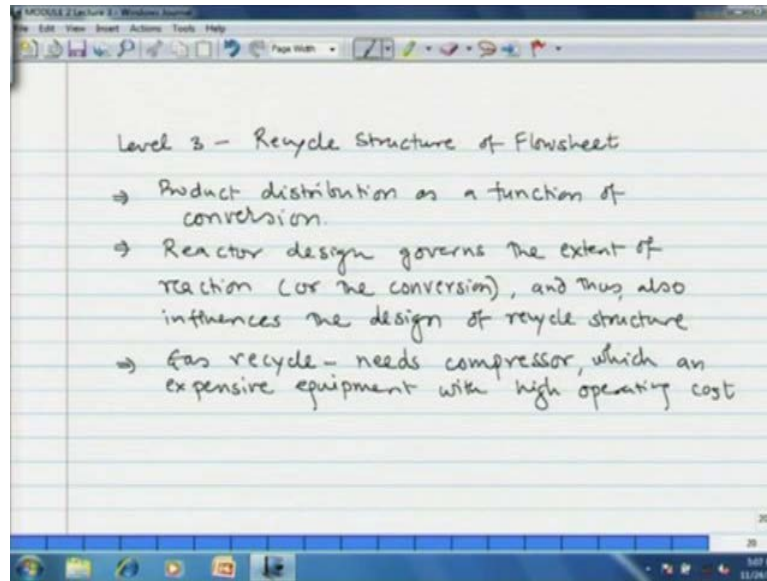 MODULE 2 Lecture 3 - Windows Journal
File Edit View Insert Actions Tools Help
Page Width
Level 3 - Recycle Structure of Flowsheet
⇒ Product distribution as a function of
conversion.
⇒ Reactor design governs the extent of
reaction (or the conversion), and thus, also
influences the design of recycle structure
⇒ Gas recycle - needs compressor, which an
expensive equipment with high operating cost
20
20